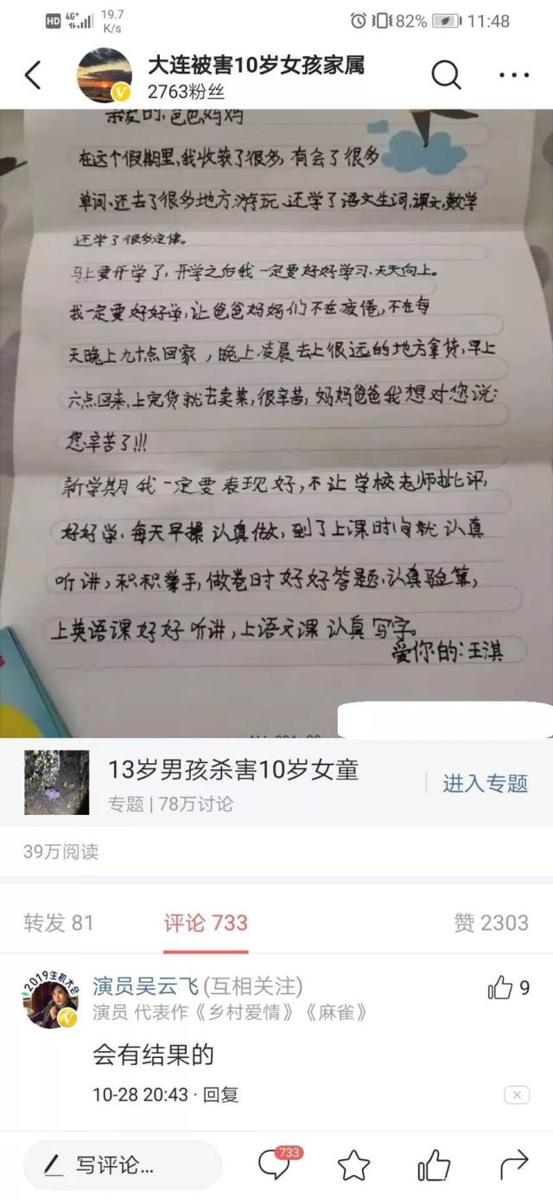 HD 4G+ 19.7 K/s 82% 11:48
大连被害10岁女孩家属
2763粉丝
亲爱的,爸爸妈妈
在这个假期里,我收获了很多,有会了很多
单词、还去了很多地方游玩、还学了语文生词,课文,数学
还学了很多定律。
马上要开学了,开学之后我一定要好好学习、天天向上。
我一定要好好学,让爸爸妈妈们不在疲倦,不在每
天晚上九十点回家,晚上凌晨去上很远的地方拿货,早上
六点回来,上完货就去卖菜,很辛苦,妈妈爸爸我想对您说:
您辛苦了!!!
新学期我一定要表现好,不让学校老师批评,
好好学,每天早操认真做,到了上课时间就认真
听讲,积积举手,做卷时好好答题,认真验算,
上英语课好好听讲,上语文课认真写字。
爱你的:王淇
13岁男孩杀害10岁女童
专题 | 78万讨论
进入专题
39万阅读
转发 81 评论 733 赞 2303
2019生机大会
演员吴云飞 (互相关注) 9
演员 代表作《乡村爱情》《麻雀》
会有结果的
10-28 20:43 · 回复
写评论... 733